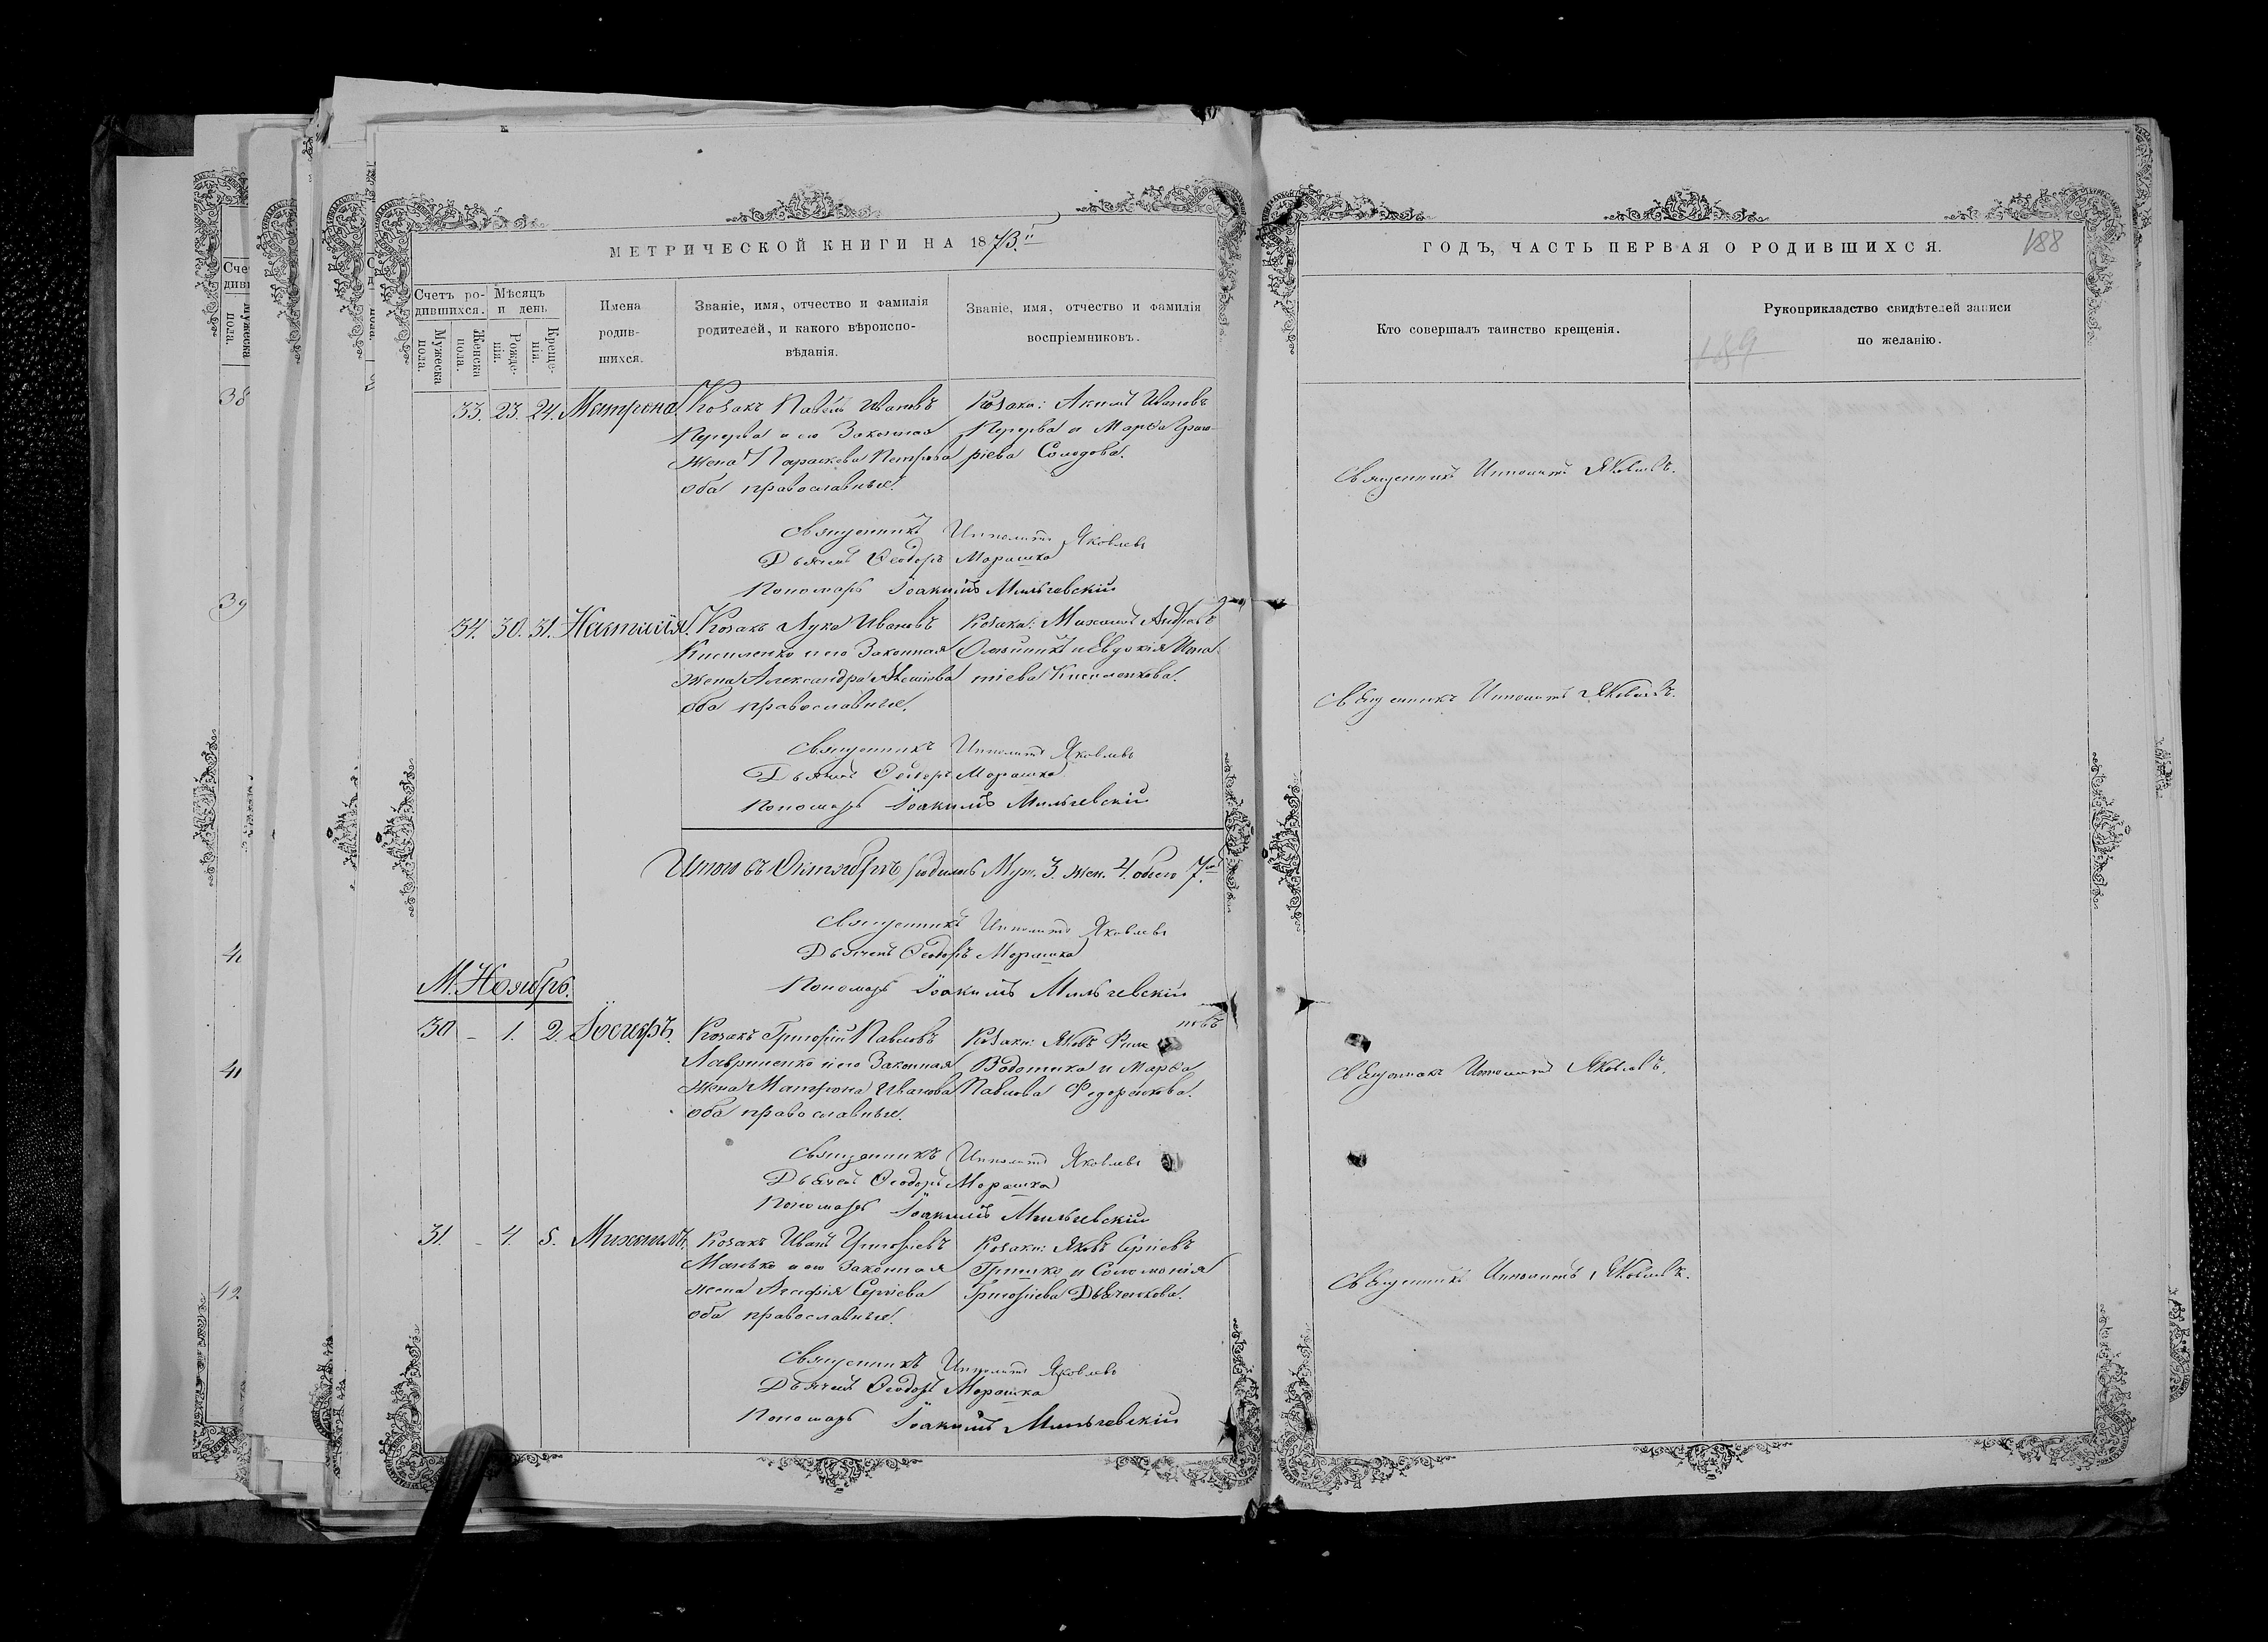 МЕТРИЧЕСКОЙ КНИГИ НА 1873й
Счетъ ро-
дившихся.
Мѣсяцъ
и день
Мужеска
пола.
Женска
пола.
Рожде-
нія.
Креще-
нія.
Имена
родив-
шихся.
Званіе, имя, отчество и фамилія
родителей, и какого вѣроиспо-
вѣданія.
Званіе, имя, отчество и фамилія
воспріемниковъ.
33. 23. 24. Матрона.
Козакъ Павелъ Ивановъ
и его Законная
жена Параскева Петрова
оба православные.
Козаки: Акимъ Ивановъ
и Марѳа Григо-
ріева
Священникъ Ипполитъ Яковлевъ
Дьячекъ Ѳеодоръ Морашко
Пономарь Іоакимъ Мильчевскій
34. 30. 31. Наталія.
Козакъ Лука Ивановъ
Кисиленко и его Законная
жена Александра
оба православные.
Козаки: Михаилъ
и Евдокія Игна-
тіева Кисиленкова.
Священникъ Ипполитъ Яковлевъ
Дьячекъ Ѳеодоръ Морашко
Пономарь Іоакимъ Мильчевскій
Итого въ Октябрѣ родилось Муж. 3. жен. 4. обоего 7.
Священникъ Ипполитъ Яковлевъ
Дьячекъ Ѳеодоръ Морашко
Пономарь Іоакимъ Мильчевскій
М. Ноябрь.
30 - 1. 2. Іосифъ.
Козакъ Григорій Павловъ
Лавриненко и его Законная
жена Матрона Иванова
оба православные.
Козаки: Яковъ Фили
повъ
Водотика и Марѳа
Павлова Федоренкова.
Священникъ Ипполитъ Яковлевъ
Дьячекъ Ѳеодоръ Морашко
Пономарь Іоакимъ Мильчевскій
31. - 4. 5. Михаилъ.
Козакъ Иванъ Григоріевъ
Манько и его Законная
жена Агафія Сергіева
оба православные.
Козаки: Яковъ Сергіевъ
Гришко и Соломонія
Григоріева Дьяченкова.
Священникъ Ипполитъ Яковлевъ
Дьячекъ Ѳеодоръ Морашко
Пономарь Іоакимъ Мильчевскій
ГОДЪ, ЧАСТЬ ПЕРВАЯ О РОДИВШИХСЯ.
188
Кто совершалъ таинство крещенія.
Рукоприкладство свидѣтелей записи
по желанію.
189
Священникъ Ипполитъ Яковлевъ.
Священникъ Ипполитъ Яковлевъ.
Священникъ Ипполитъ Яковлевъ.
Священникъ Ипполитъ Яковлевъ.
38
39
40
41
42